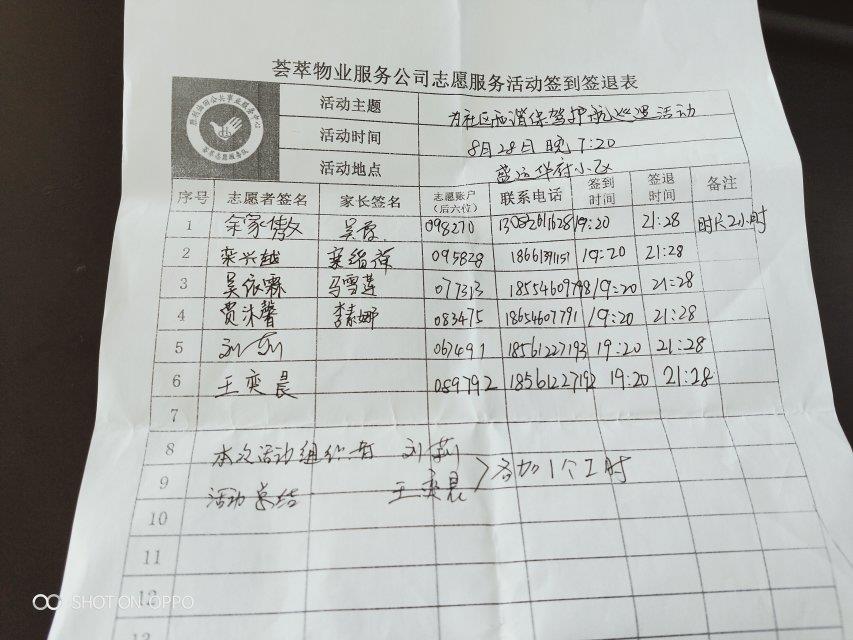 荟萃物业服务公司志愿服务活动签到签退表
活动主题 为社区西消保驾护航巡逻活动
活动时间 8月28日晚7:20
活动地点 盛运华府小区
序号 志愿者签名 家长签名 志愿账户(后六位) 联系电话 签到时间 签退时间 备注
1 吴霞 098270 13082611628 19:20 21:28 时长2小时
2 栾兴越 095828 18661391151 19:20 21:28
3 吴依霖 马雪莲 077313 18554609798 19:20 21:28
4 贾沐馨 李素娜 083475 18654607791 19:20 21:28
5 067491 18561227193 19:20 21:28
6 王奕晨 089792 18561227192 19:20 21:28
7
8 本次活动组织者 刘莉
9 活动总结 王奕晨 >各加1个工时
10
11
12
13
SHOT ON OPPO